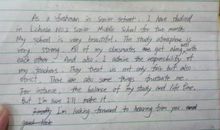 As a freshman in Senior school. I have studied
in Lishuba No.1 Senior Middle School for two months.
My school is very beautiful. The study atmosphere is
very strong. All of my classmates get along with
each other. And also, I admire the responsibility of
my teachers. They treat us not only this but also
strict. There are also some things frustrate me.
For instance, the balance of my study and life time.
But I'm sure I'll make it.
I'm looking forward to hearing from you.